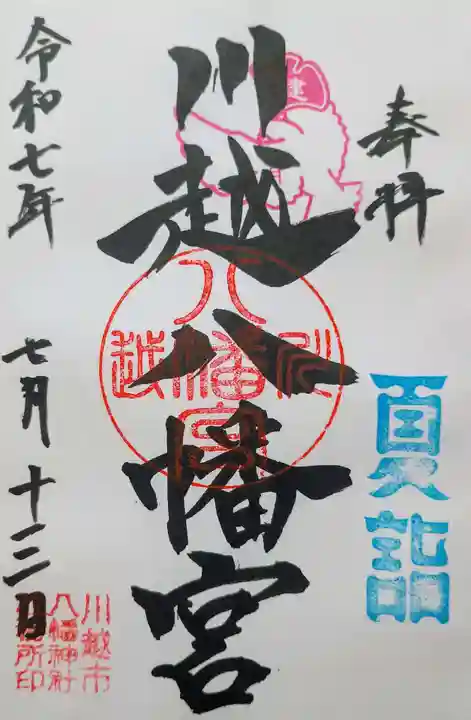 奉拝
夏詣
川越八幡宮
川越八幡宮
令和七年 七月十三日
川越市
八幡神社
所印